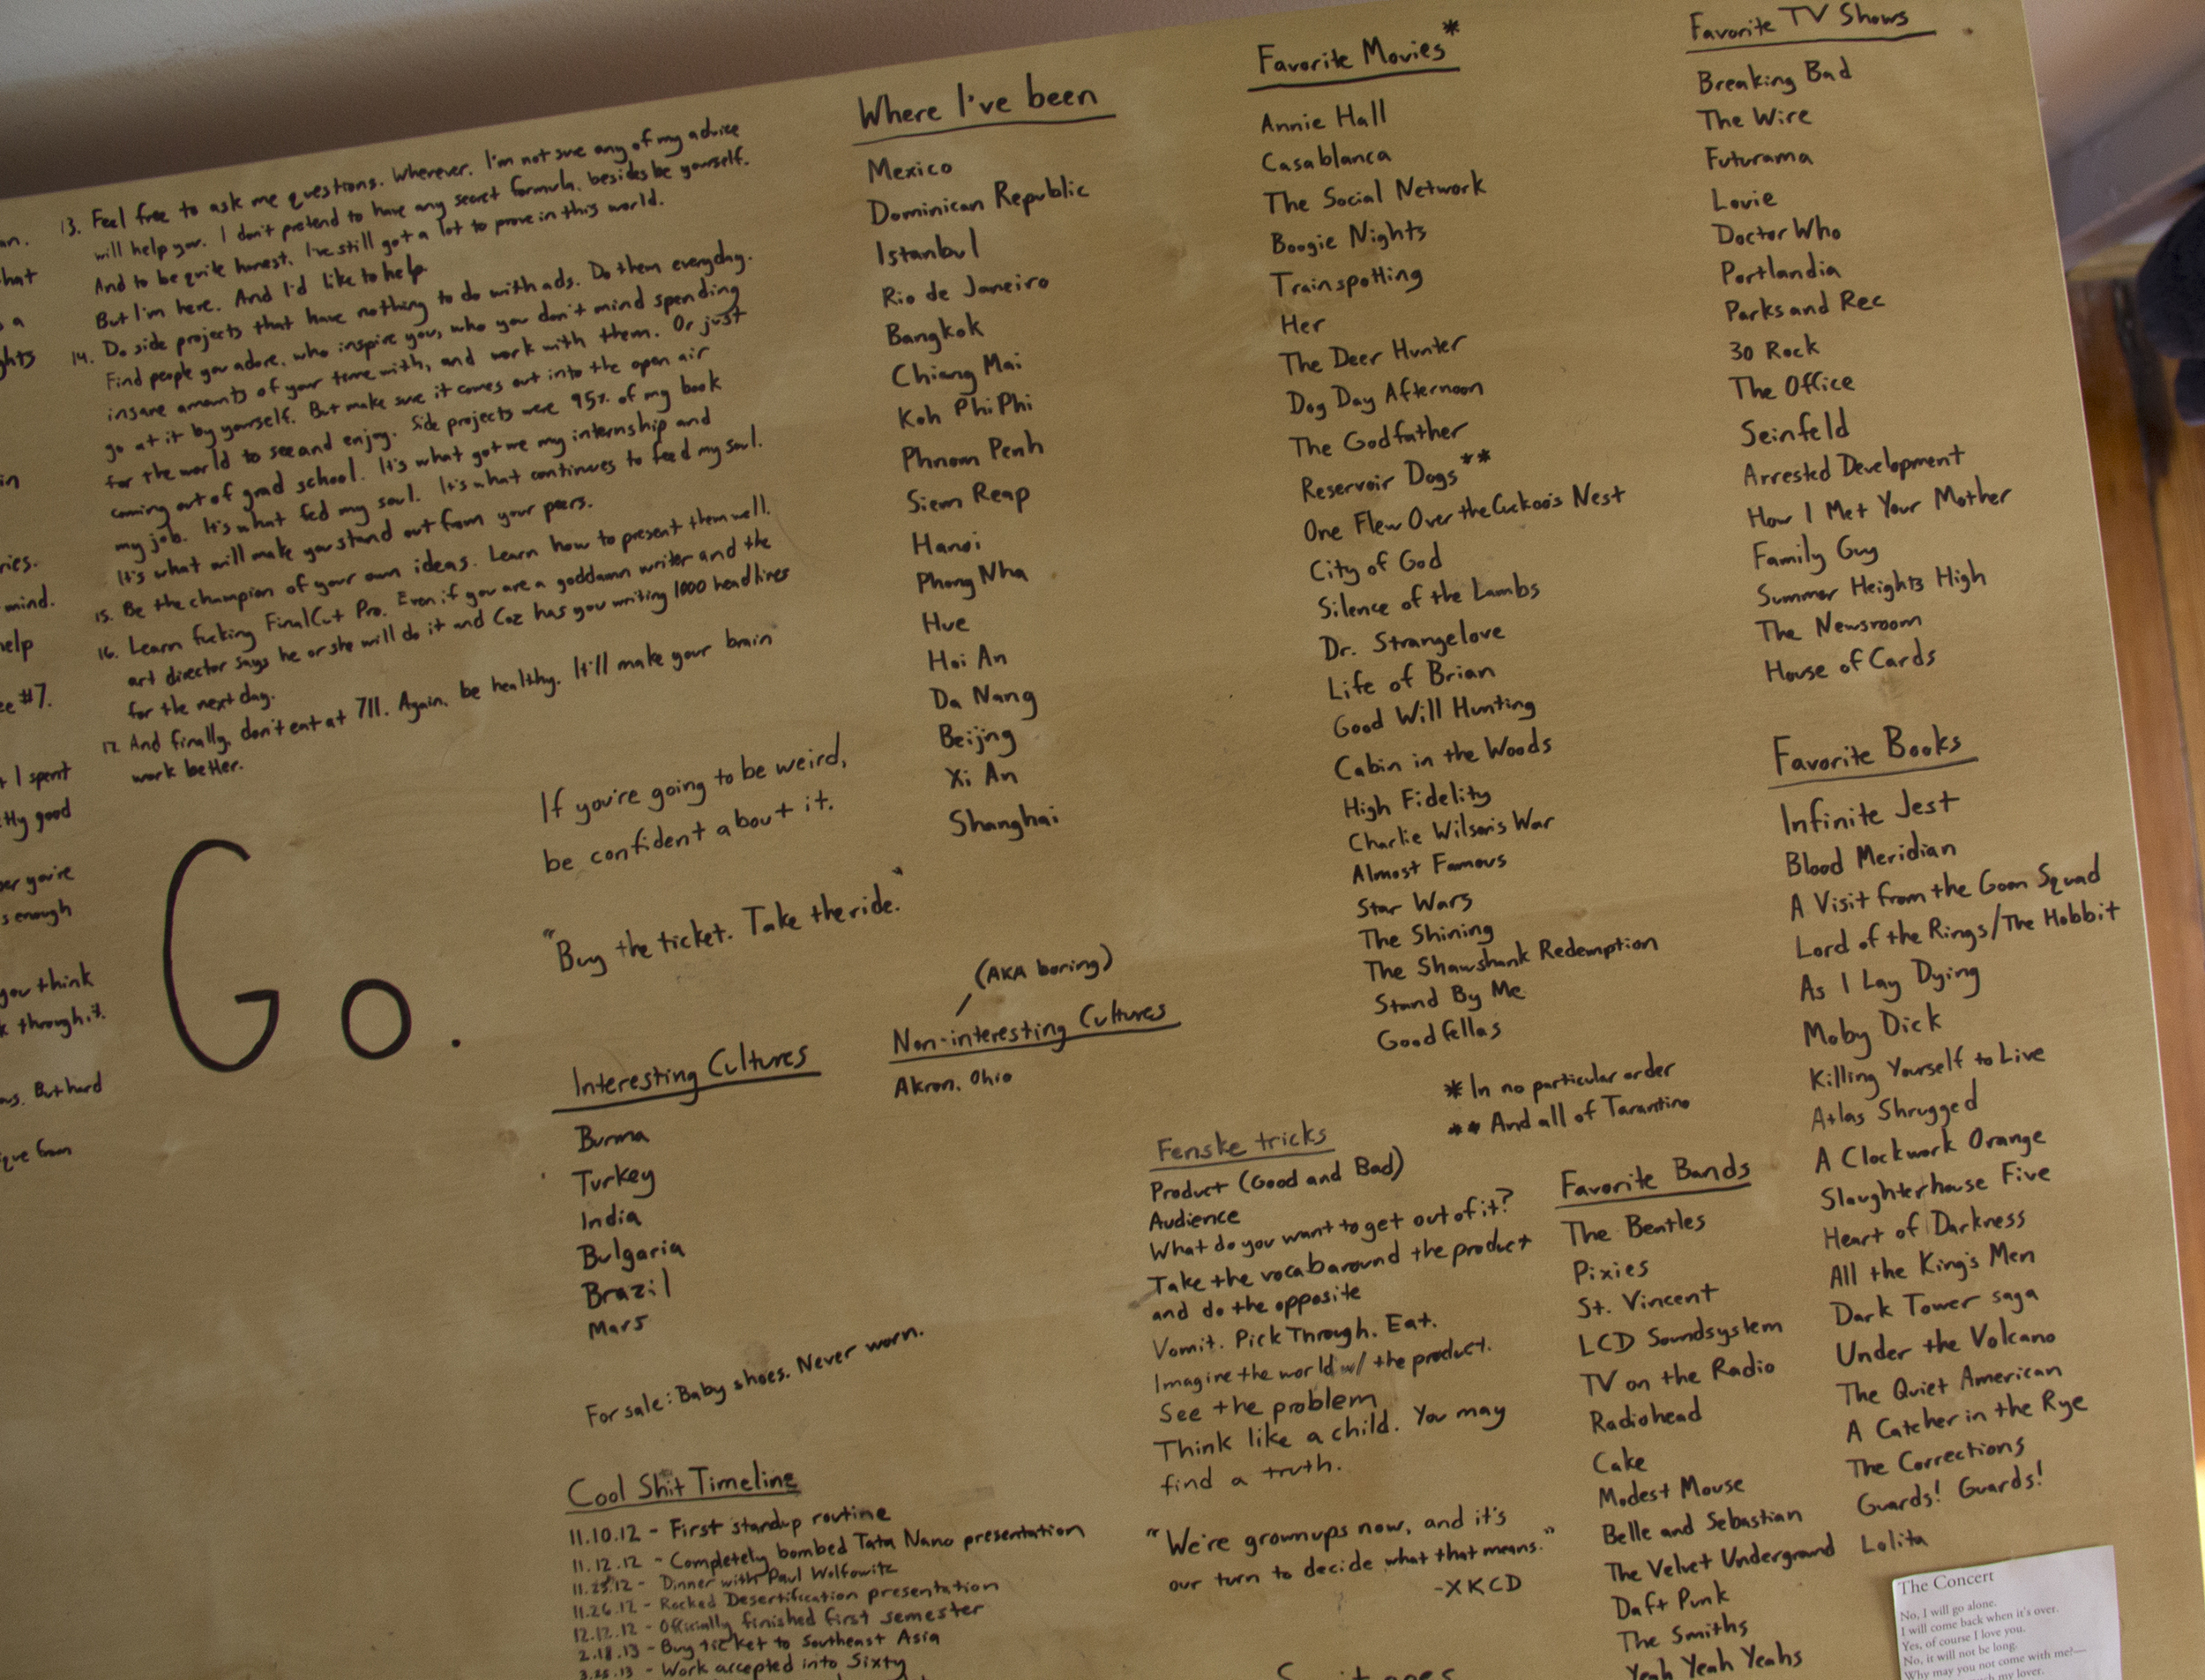 an.
hat
a
ghts
in
ries.
mind.
help
ee #7.
I spent
tly good
er you're
s enough
you think
k through it.
But hard
ique from
13. Feel free to ask me questions. Wherever. I'm not sure any of my advice
will help you. I don't pretend to have any secret formula, besides be yourself.
And to be quite honest, I've still got a lot to prove in this world.
But I'm here. And I'd like to help.
14. Do side projects that have nothing to do with ads. Do them everyday.
Find people you adore, who inspire you, who you don't mind spending
insane amounts of your time with, and work with them. Or just
go at it by yourself. But make sure it comes out into the open air
for the world to see and enjoy. Side projects were 95% of my book
coming out of grad school. It's what got me my internship and
my job. It's what fed my soul. It's what continues to feed my soul.
It's what will make you stand out from your peers.
15. Be the champion of your own ideas. Learn how to present them well.
16. Learn fucking FinalCut Pro. Even if you are a goddamn writer and the
art director says he or she will do it and Coz has you writing 1000 headlines
for the next day.
17. And finally, don't eat at 711. Again, be healthy. It'll make your brain
work better.
Go.
If you're going to be weird,
be confident about it.
"Buy the ticket. Take the ride."
Where I've been
Mexico
Dominican Republic
Istanbul
Rio de Janeiro
Bangkok
Chiang Mai
Koh Phi Phi
Phnom Penh
Siem Reap
Hanoi
Phong Nha
Hue
Hoi An
Da Nang
Beijng
Xi An
Shanghai
Interesting Cultures
Burma
Turkey
India
Bulgaria
Brazil
Mars
(AKA boring)
Non-interesting Cultures
Akron, Ohio
For sale: Baby shoes. Never worn.
Cool Shit Timeline
11.10.12 - First standup routine
11.12.12 - Completely bombed Tata Nano presentation
11.25.12 - Dinner with Paul Wolfowitz
11.26.12 - Rocked Desertification presentation
12.12.12 - Officially finished first semester
2.18.13 - Buy ticket to Southeast Asia
3.25.13 - Work accepted into Sixty
Favorite Movies*
Annie Hall
Casablanca
The Social Network
Boogie Nights
Trainspotting
Her
The Deer Hunter
Dog Day Afternoon
The Godfather
Reservoir Dogs**
One Flew Over the Cuckoo's Nest
City of God
Silence of the Lambs
Dr. Strangelove
Life of Brian
Good Will Hunting
Cabin in the Woods
High Fidelity
Charlie Wilson's War
Almost Famous
Star Wars
The Shining
The Shawshank Redemption
Stand By Me
Goodfellas
* In no particular order
** And all of Tarantino
Fenske tricks
Product (Good and Bad)
Audience
What do you want to get out of it?
Take the vocab around the product
and do the opposite
Vomit. Pick Through. Eat.
Imagine the world w/ the product.
See the problem
Think like a child. You may
find a truth.
"We're grownups now, and it's
our turn to decide what that means."
-XKCD
Favorite TV Shows
Breaking Bad
The Wire
Futurama
Louie
Doctor Who
Portlandia
Parks and Rec
30 Rock
The Office
Seinfeld
Arrested Development
How I Met Your Mother
Family Guy
Summer Heights High
The Newsroom
House of Cards
Favorite Books
Infinite Jest
Blood Meridian
A Visit from the Goon Squad
Lord of the Rings/The Hobbit
As I Lay Dying
Moby Dick
Killing Yourself to Live
Atlas Shrugged
A Clockwork Orange
Slaughterhouse Five
Heart of Darkness
All the King's Men
Dark Tower saga
Under the Volcano
The Quiet American
A Catcher in the Rye
The Corrections
Guards! Guards!
Lolita
Favorite Bands
The Beatles
Pixies
St. Vincent
LCD Soundsystem
TV on the Radio
Radiohead
Cake
Modest Mouse
Belle and Sebastian
The Velvet Underground
Daft Punk
The Smiths
Yeah Yeah Yeahs
The Concert
No, I will go alone.
I will come back when it's over.
Yes, of course I love you.
No, it will not be long.
Why may you not come with me?—
much my lover.